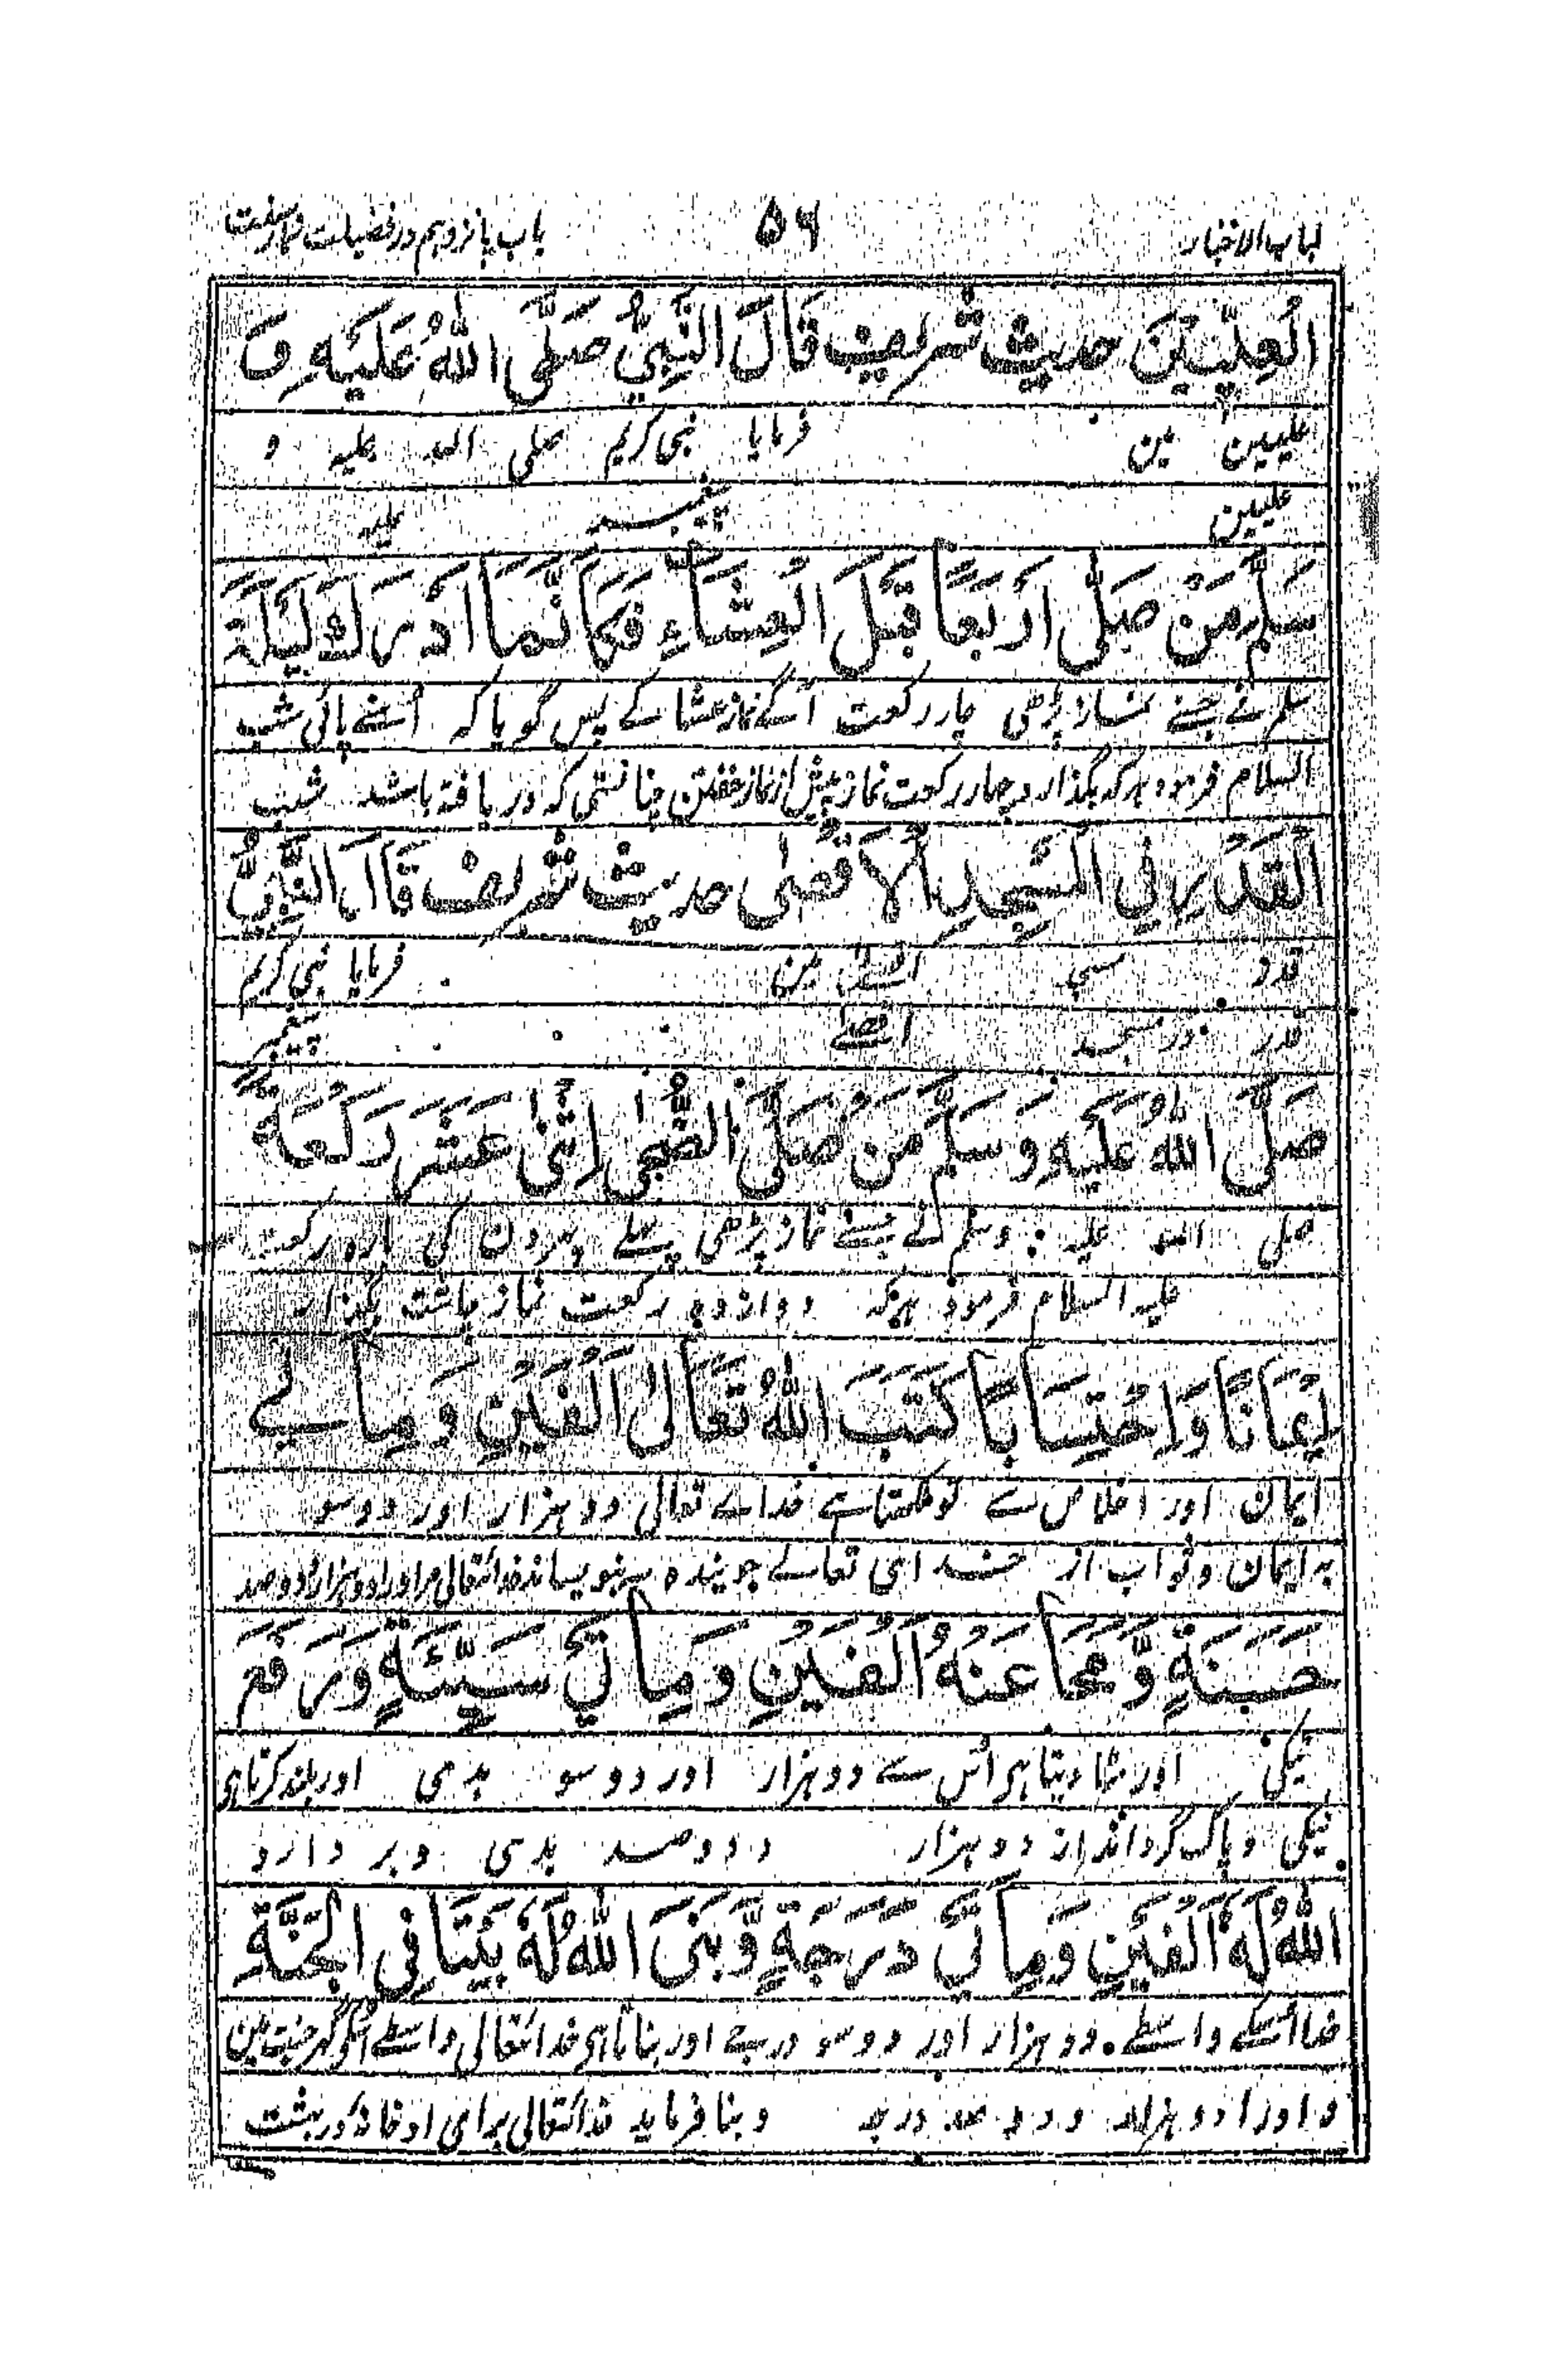 لباب الاخبار ۵۶ باب پانزدہم در فضیلت نماز سنت
الْعِلِّيِّيْنَ حديث شريف قَالَ النَّبِيُّ صَلَّى اللّٰهُ عَلَيْهِ وَ
علیین مین فرمایا نبی کریم صلی اللہ علیہ و
علیین پیغمبر علیہ
سَلَّمَ مَنْ صَلّٰى اَرْبَعًا قَبْلَ الْعِشَاءِ فَكَاَنَّمَا اَدْرَكَ لَيْلَةَ
سلم نے جسنے نماز پڑھی چار رکعت آگے نماز عشا کے پس گویا کہ اُسنے پائی شب
السلام فرمود ہر کہ بگذارد چہار رکعت نماز پیش از نماز خفتن چنانستی کہ دریافتہ باشد شب
الْقَدْرِ فِي الْمَسْجِدِ الْاَقْصٰى حديث شريف قَالَ النَّبِيُّ
قدر مین فرمایا نبی کریم
قدر در مسجد اقصے پیغمبر
صَلَّى اللّٰهُ عَلَيْهِ وَسَلَّمَ مَنْ صَلَّى الضُّحٰى اِثْنٰى عَشَرَ رَكْعَةً
صلی اللہ علیہ وسلم نے جسنے نماز پڑھی پہلے کی بارہ رکعت
علیہ السلام فرمود ہرکہ دوازدہ رکعت نماز چاشت بگذارد
اِيْمَانًا وَاِحْتِسَابًا كَتَبَ اللّٰهُ تَعَالٰى اَلْفَيْنِ وَمِاىَٔتَے
ایمان اور اخلاص سے تو لکھتا ہے خداے تعالی دو ہزار اور دو سو
بہ ایمان و ثواب از خداى تعالے جویندہ بنویساند خدائتعالی مر اورا دو ہزار و دو صد
حَسَنَةٍ وَّمَحَا عَنْهُ اَلْفَيْنِ وَمِائَتَيْ سَيِّئَةٍ وَرَفَعَ
نیکی اور مٹا دیتا ہی اُس سے دو ہزار اور دو سو بدی اور بلند کرتا ہی
نیکی و پاک گرداند از دو ہزار و دو صد بدی و بر دارد
اللّٰهُ لَهٗ اَلْفَيْنِ وَمِائَتَيْ دَرَجَةٍ وَّبَنَى اللّٰهُ لَهٗ بَيْتًا فِى الْجَنَّةِ
خدا اُسکے واسطے دو ہزار اور دو سو درجے اور بناتا ہی خدائتعالی واسطے اُسکے گھر جنت مین
و اورا دو ہزار و دو صد درجہ و بنا فرماید خدائتعالی برای او خانہ در بہشت